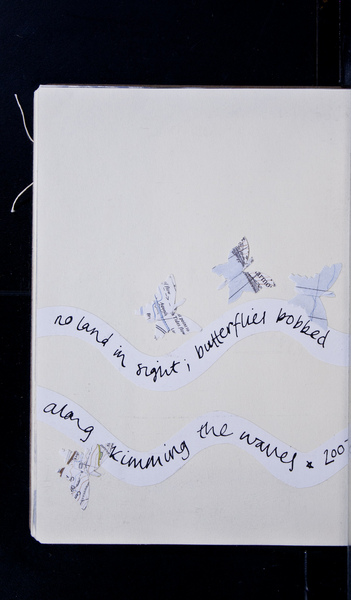 no land in sight; butterflies bobbed
along skimming the waves * 200-